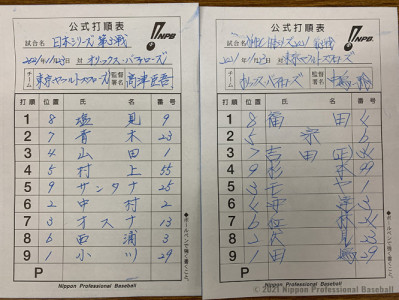 公式打順表
NPB
試合名 日本シリーズ 第3戦
2021年11月23日 対 オリックス・バファローズ
チーム 東京ヤクルトスワローズ 監督署名 高津臣吾
打順 位置 氏名 番号
1 8 塩見 9
2 7 青木 23
3 4 山田 1
4 5 村上 55
5 9 サンタナ 25
6 2 中村 2
7 3 オスナ 13
8 6 西浦 3
9 1 小川 29
P
●ボールペンで強く書くこと。
Nippon Professional Baseball
公式打順表
NPB
試合名
対 東京ヤクルトスワローズ
チーム オリックス・バファローズ 監督署名 中嶋聡
打順 位置 氏名 番号
1 8 福田
2 5 宗 6
3 7 吉田正
4 9 杉本 99
5 3 モヤ 1
6 安達
7
8 2 伏見
9 1 田嶋 29
P
●ボールペンで強く書くこと。
Nippon Professional Baseball
© 2021 Nippon Professional Baseball